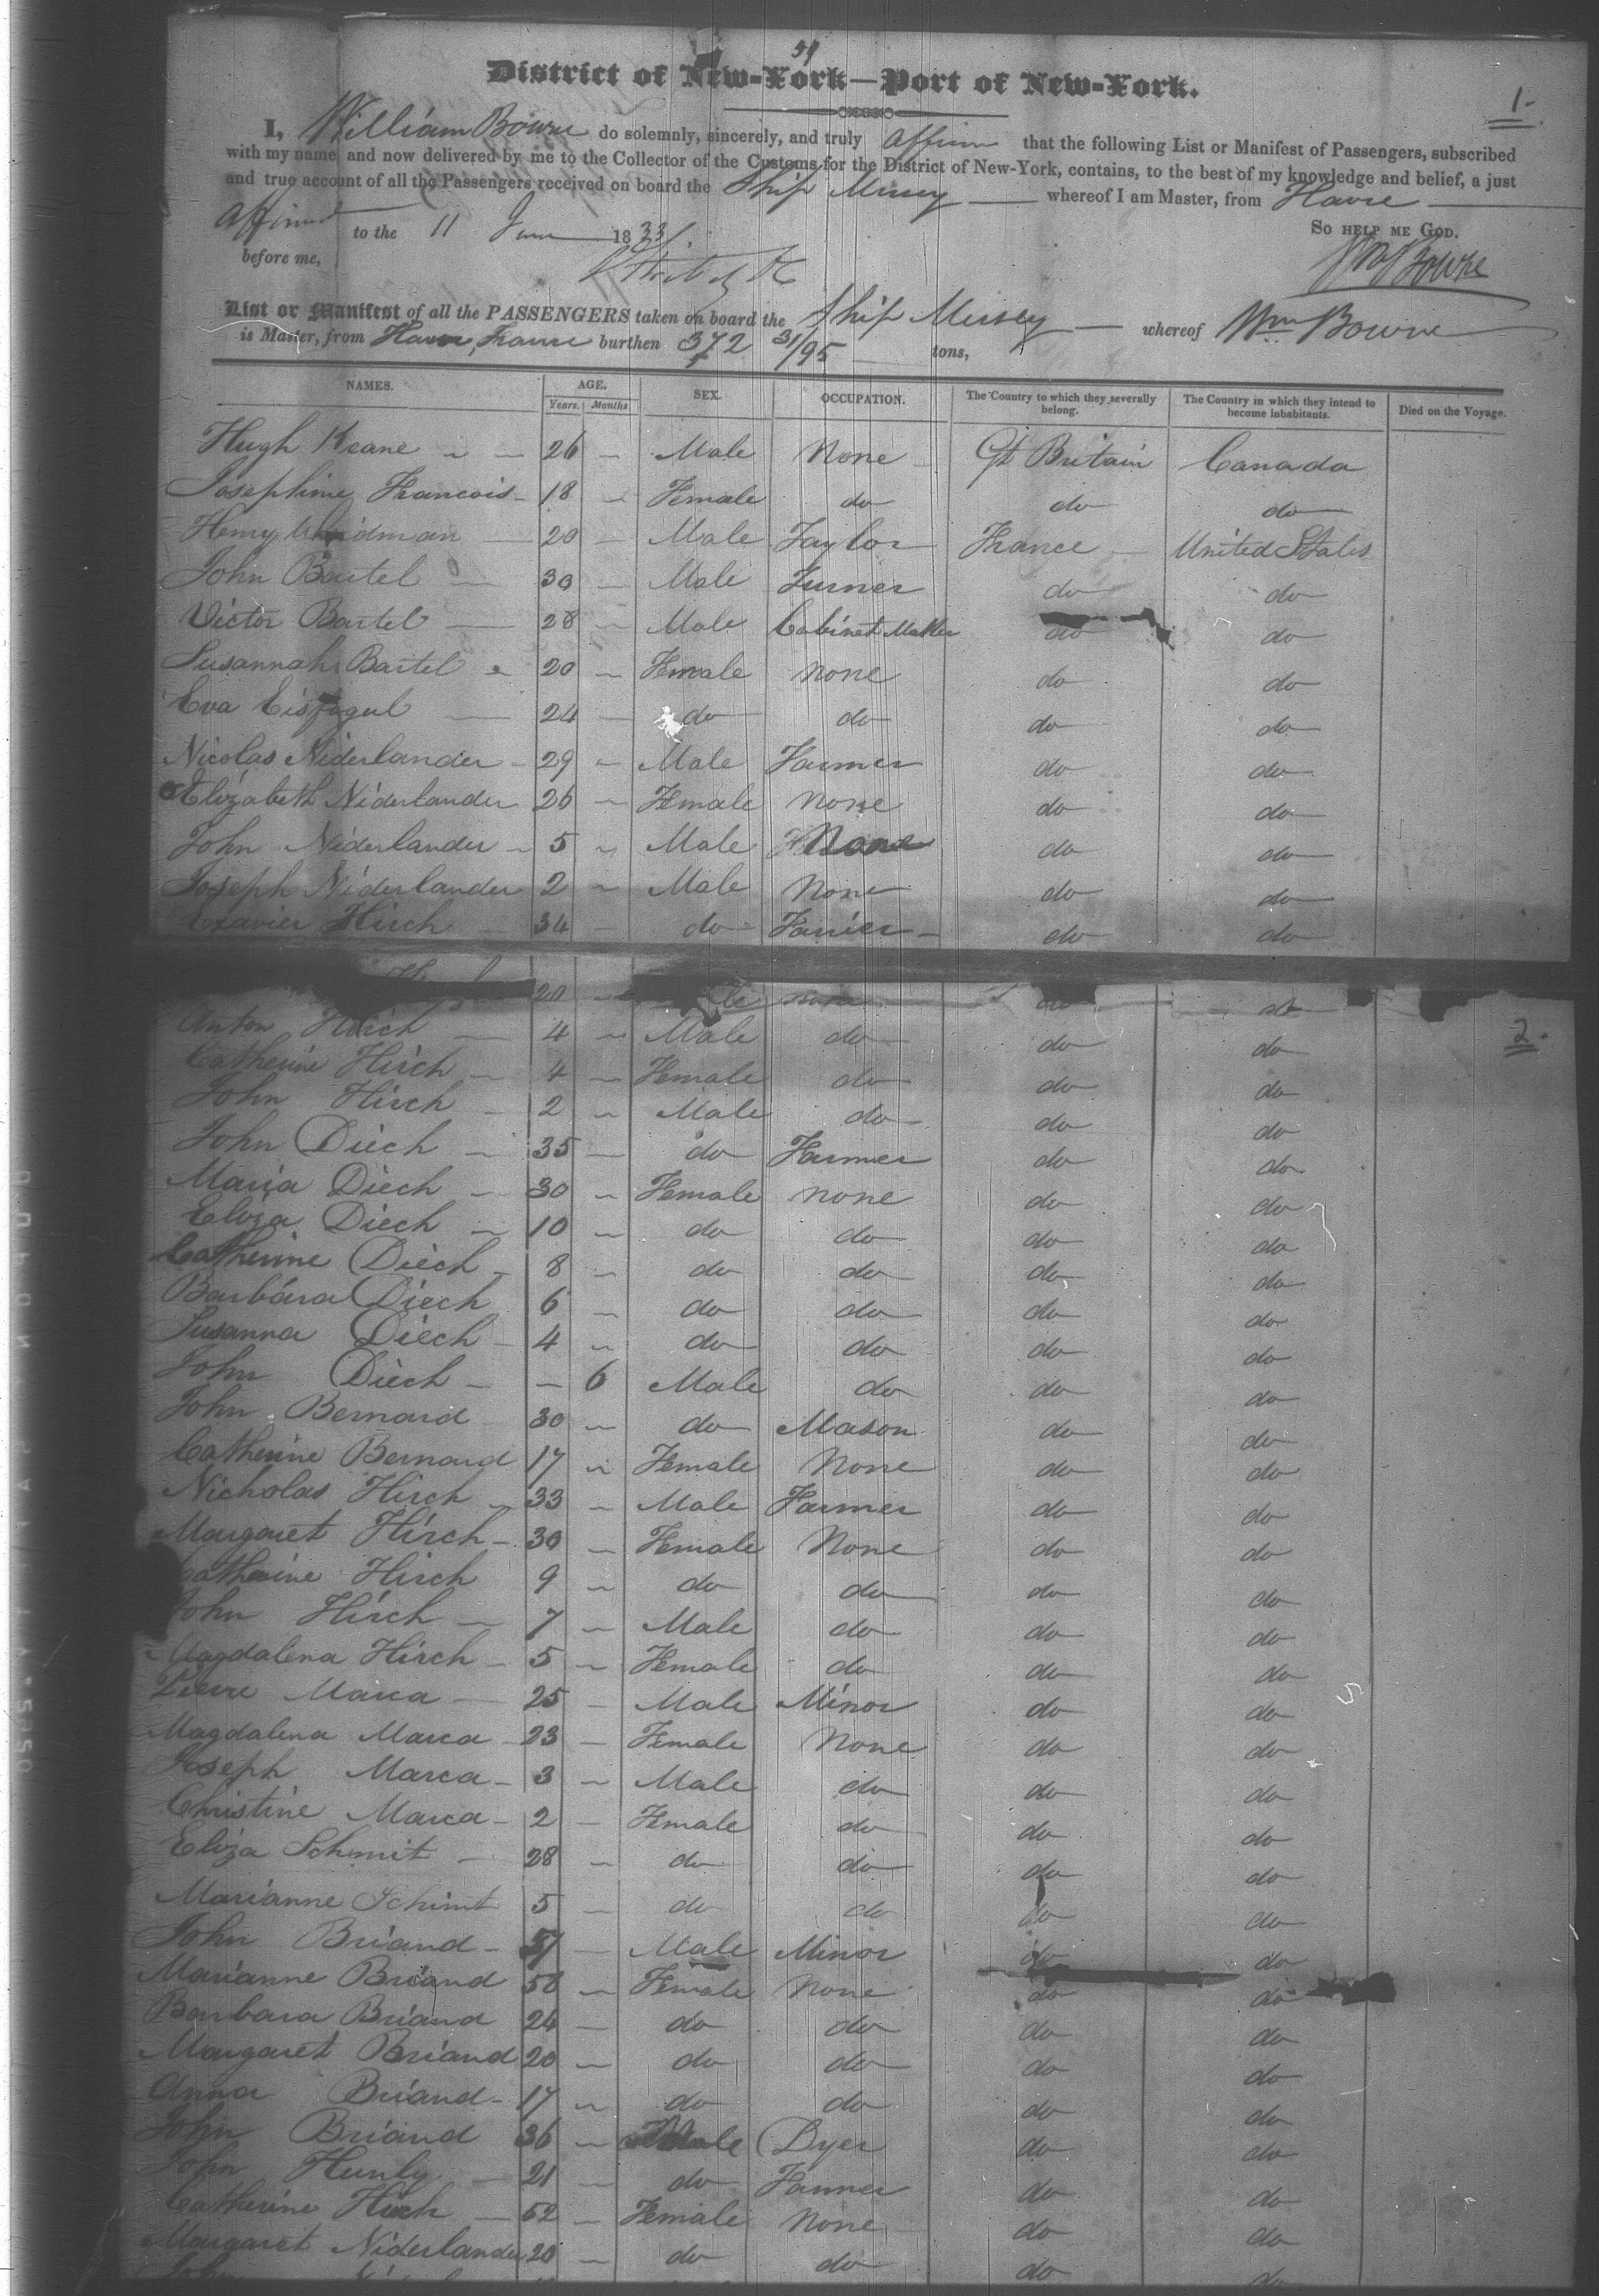 31
District of New-York—Port of New-York.
1.
I, William Bowne do solemnly, sincerely, and truly affirm that the following List or Manifest of Passengers, subscribed
with my name, and now delivered by me to the Collector of the Customs for the District of New-York, contains, to the best of my knowledge and belief, a just
and true account of all the Passengers received on board the Ship Mersey whereof I am Master, from Havre
Affirmed to the 11 June 1833. So help me God.
before me,
Wm Bowne
List or Manifest of all the PASSENGERS taken on board the Ship Mersey whereof Wm Bowne
is Master, from Havre, France burthen 372 31/95 tons,
NAMES. AGE. SEX. OCCUPATION. The Country to which they severally belong. The Country in which they intend to become inhabitants. Died on the Voyage.
Years. Months
Hugh Keane 26 Male None Gt Britain Canada
Josephine Francois 18 Female do do do
Henry 20 Male Taylor France United States
John Bartel 30 Male Turner do do
Victor Bartel 28 Male Cabinet Maker do do
Susannah Bartel 20 Female none do do
Eva 24 do do do do
Nicolas Niderlander 29 Male Farmer do do
Elizabeth Niderlander 26 Female none do do
John Niderlander 5 Male None do do
Joseph Niderlander 2 Male None do do
Exavier Hirch 34 do Farrier do do
20 none do do
2.
Anton Hirch 4 Male do do do
Catherine Hirch 4 Female do do do
John Hirch 2 Male do do do
John Diech 35 do Farmer do do
Maria Diech 30 Female none do do
Eliza Diech 10 do do do do
Catherine Diech 8 do do do do
Barbara Diech 6 do do do do
Susanna Diech 4 do do do do
John Diech — 6 Male do do do
John Bernard 30 do Mason do do
Catherine Bernard 17 Female None do do
Nicholas Hirch 33 Male Farmer do do
Margaret Hirch 30 Female None do do
Catherine Hirch 9 do do do do
John Hirch 7 Male do do do
Magdalena Hirch 5 Female do do do
Pierre Marca 25 Male Minor do do
Magdalena Marca 23 Female None do do
Joseph Marca 3 Male do do do
Christine Marca 2 Female do do do
Eliza Schmit 28 do do do do
Marianne Schimt 5 do do do do
John Briand 57 Male Minor do do
Marianne Briand 58 Female None do do
Barbara Briand 24 do do do do
Margaret Briand 20 do do do do
Anna Briand 17 do do do do
John Briand 36 Male Dyer do do
John Hunly 21 do Farmer do do
Catherine Hirch 52 Female None do do
Margaret Niderlander 20 do do do do
John